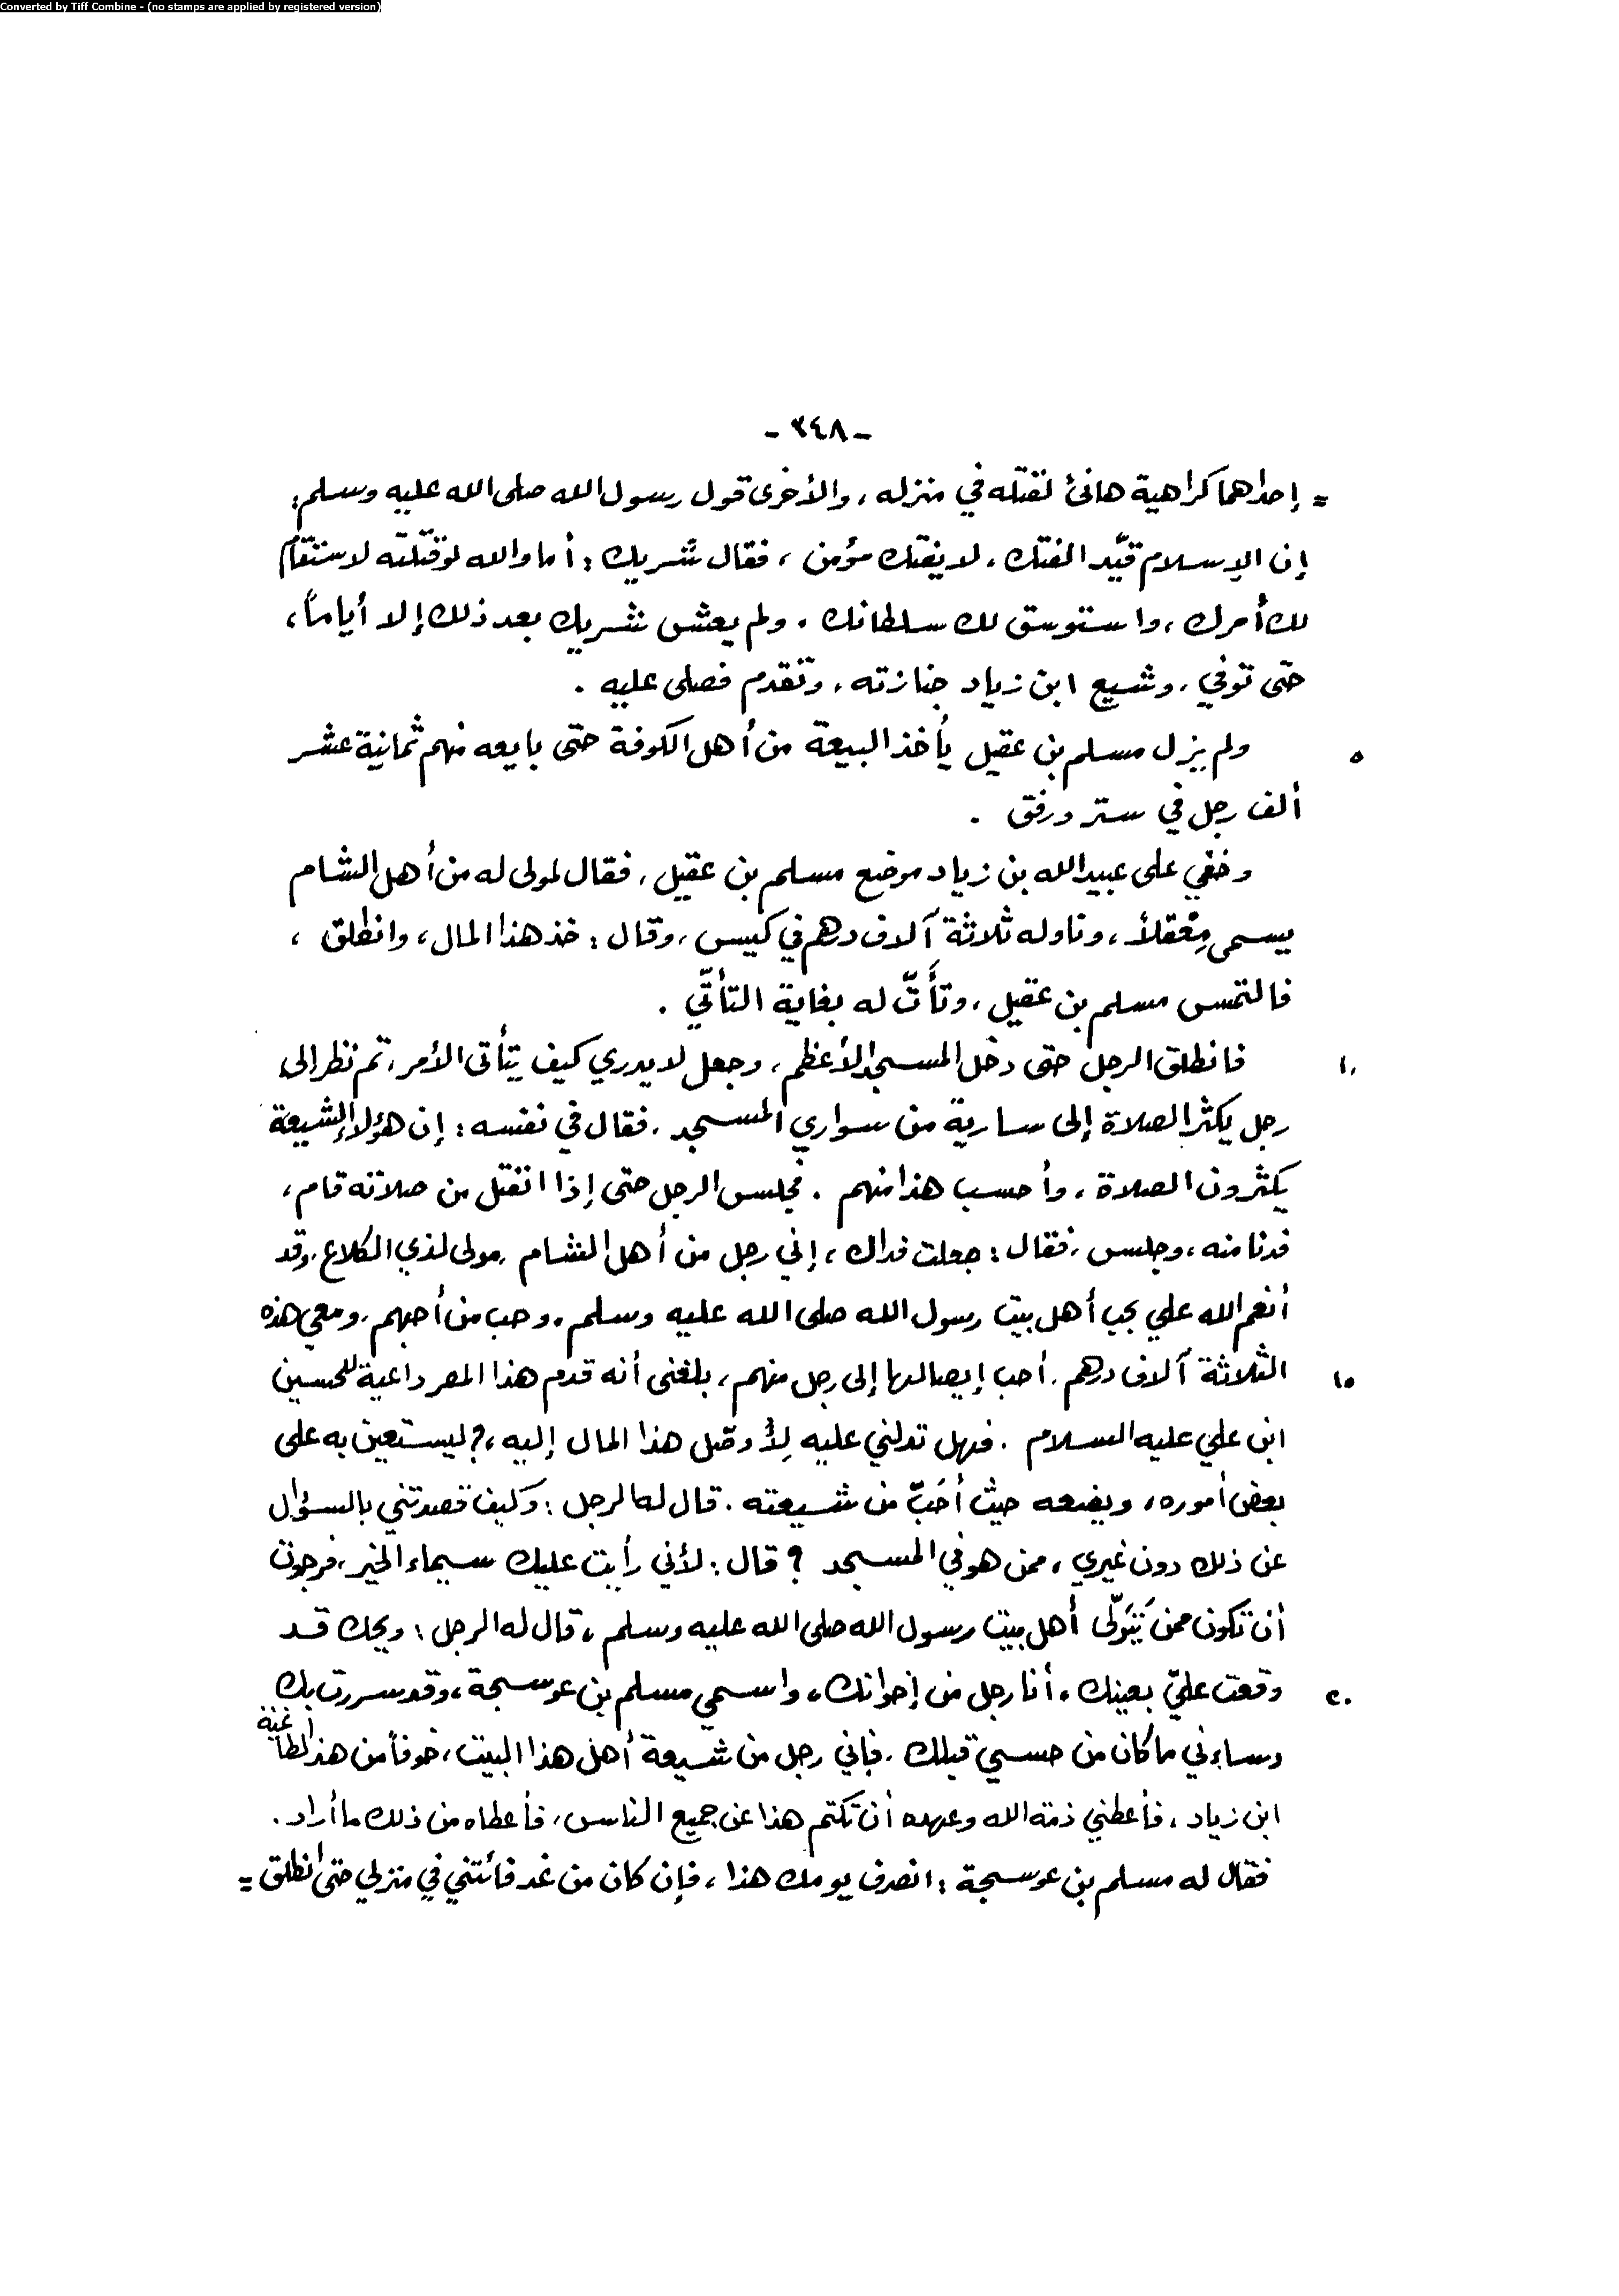 Converted by Tiff Combine - (no stamps are applied by registered version)
- ٣٤٨ -
= إحداهما كراهية هانئ لقتله في منزله، والأخرى قول رسول الله صلى الله عليه وسلم:
إن الإسلام قيّد الفتك، لا يفتك مؤمن، فقال شريك: أما والله لو قتلته لاستقام
لك أمرك، واستوسق لك سلطانك. ولم يعش شريك بعد ذلك إلا أياماً،
حتى توفي، وشيع ابن زياد جنازته، وتقدم فصلى عليه.
٥ ولم يزل مسلم بن عقيل يأخذ البيعة من أهل الكوفة حتى بايعه منهم ثمانية عشر
ألف رجل في ستر ورفق.
وخفي على عبيد الله بن زياد موضع مسلم بن عقيل، فقال لمولى له من أهل الشام
يسمى مِعْقلاً، وناوله ثلاثة آلاف درهم في كيس، وقال: خذ هذا المال، وانطلق،
فالتمس مسلم بن عقيل، وتأَتَّ له بغاية التأتّي.
١٠ فانطلق الرجل حتى دخل المسجد الأعظم، وجعل لا يدري كيف يتأتى الأمر، ثم نظر إلى
رجل يكثر الصلاة إلى سارية من سواري المسجد، فقال في نفسه: إن هؤلاء الشيعة
يكثرون الصلاة، وأحسب هذا منهم. فجلس الرجل حتى إذا انفتل من صلاته قام،
فدنا منه، وجلس، فقال: جعلت فداك، إني رجل من أهل الشام، مولى لذي الكلاع، وقد
أنعم الله علي بحب أهل بيت رسول الله صلى الله عليه وسلم، وحب من أحبهم، ومعي هذه
١٥ الثلاثة آلاف درهم، أحب إيصالها إلى رجل منهم، بلغني أنه قدم هذا المصر داعية للحسين
ابن علي عليه السلام. فهل تدلني عليه لِأُوصّل هذا المال إليه،؟ ليستعين به على
بعض أموره، ويضعه حيث أحَبَّ من شيعته. قال له الرجل: وكيف قصدتني بالسؤال
عن ذلك دون غيري، ممن هو في المسجد؟ قال: لأني رأيت عليك سيماء الخير، فرجوت
أن تكون ممن يَتَولّى أهل بيت رسول الله صلى الله عليه وسلم، قال له الرجل: ويحك قد
٢٠ وقعت عليّ بعينك، أنا رجل من إخوانك، واسمي مسلم بن عوسجة، وقد سررت بك
وساءني ما كان من حسي قبلك، فإني رجل من شيعة أهل هذا البيت، خوفاً من هذا الطاغية
ابن زياد، فأعطني ذمة الله وعهده أن تكتم هذا عن جميع الناس، فأعطاه من ذلك ما أراد.
فقال له مسلم بن عوسجة: انصرف يومك هذا، فإن كان من غد فائتني في منزلي حتى أنطلق =